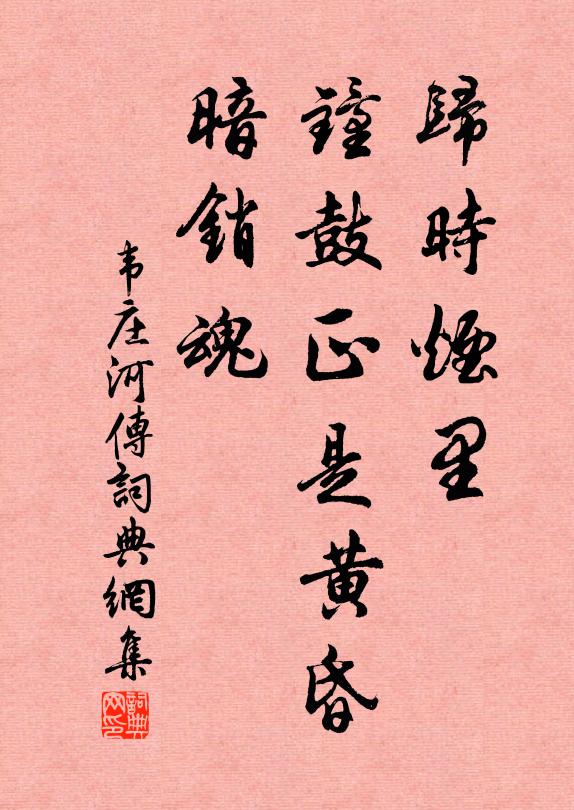 歸時煙里
鐘鼓正是黃昏
暗銷魂
韦庄河傳詞典網集
詞典网印